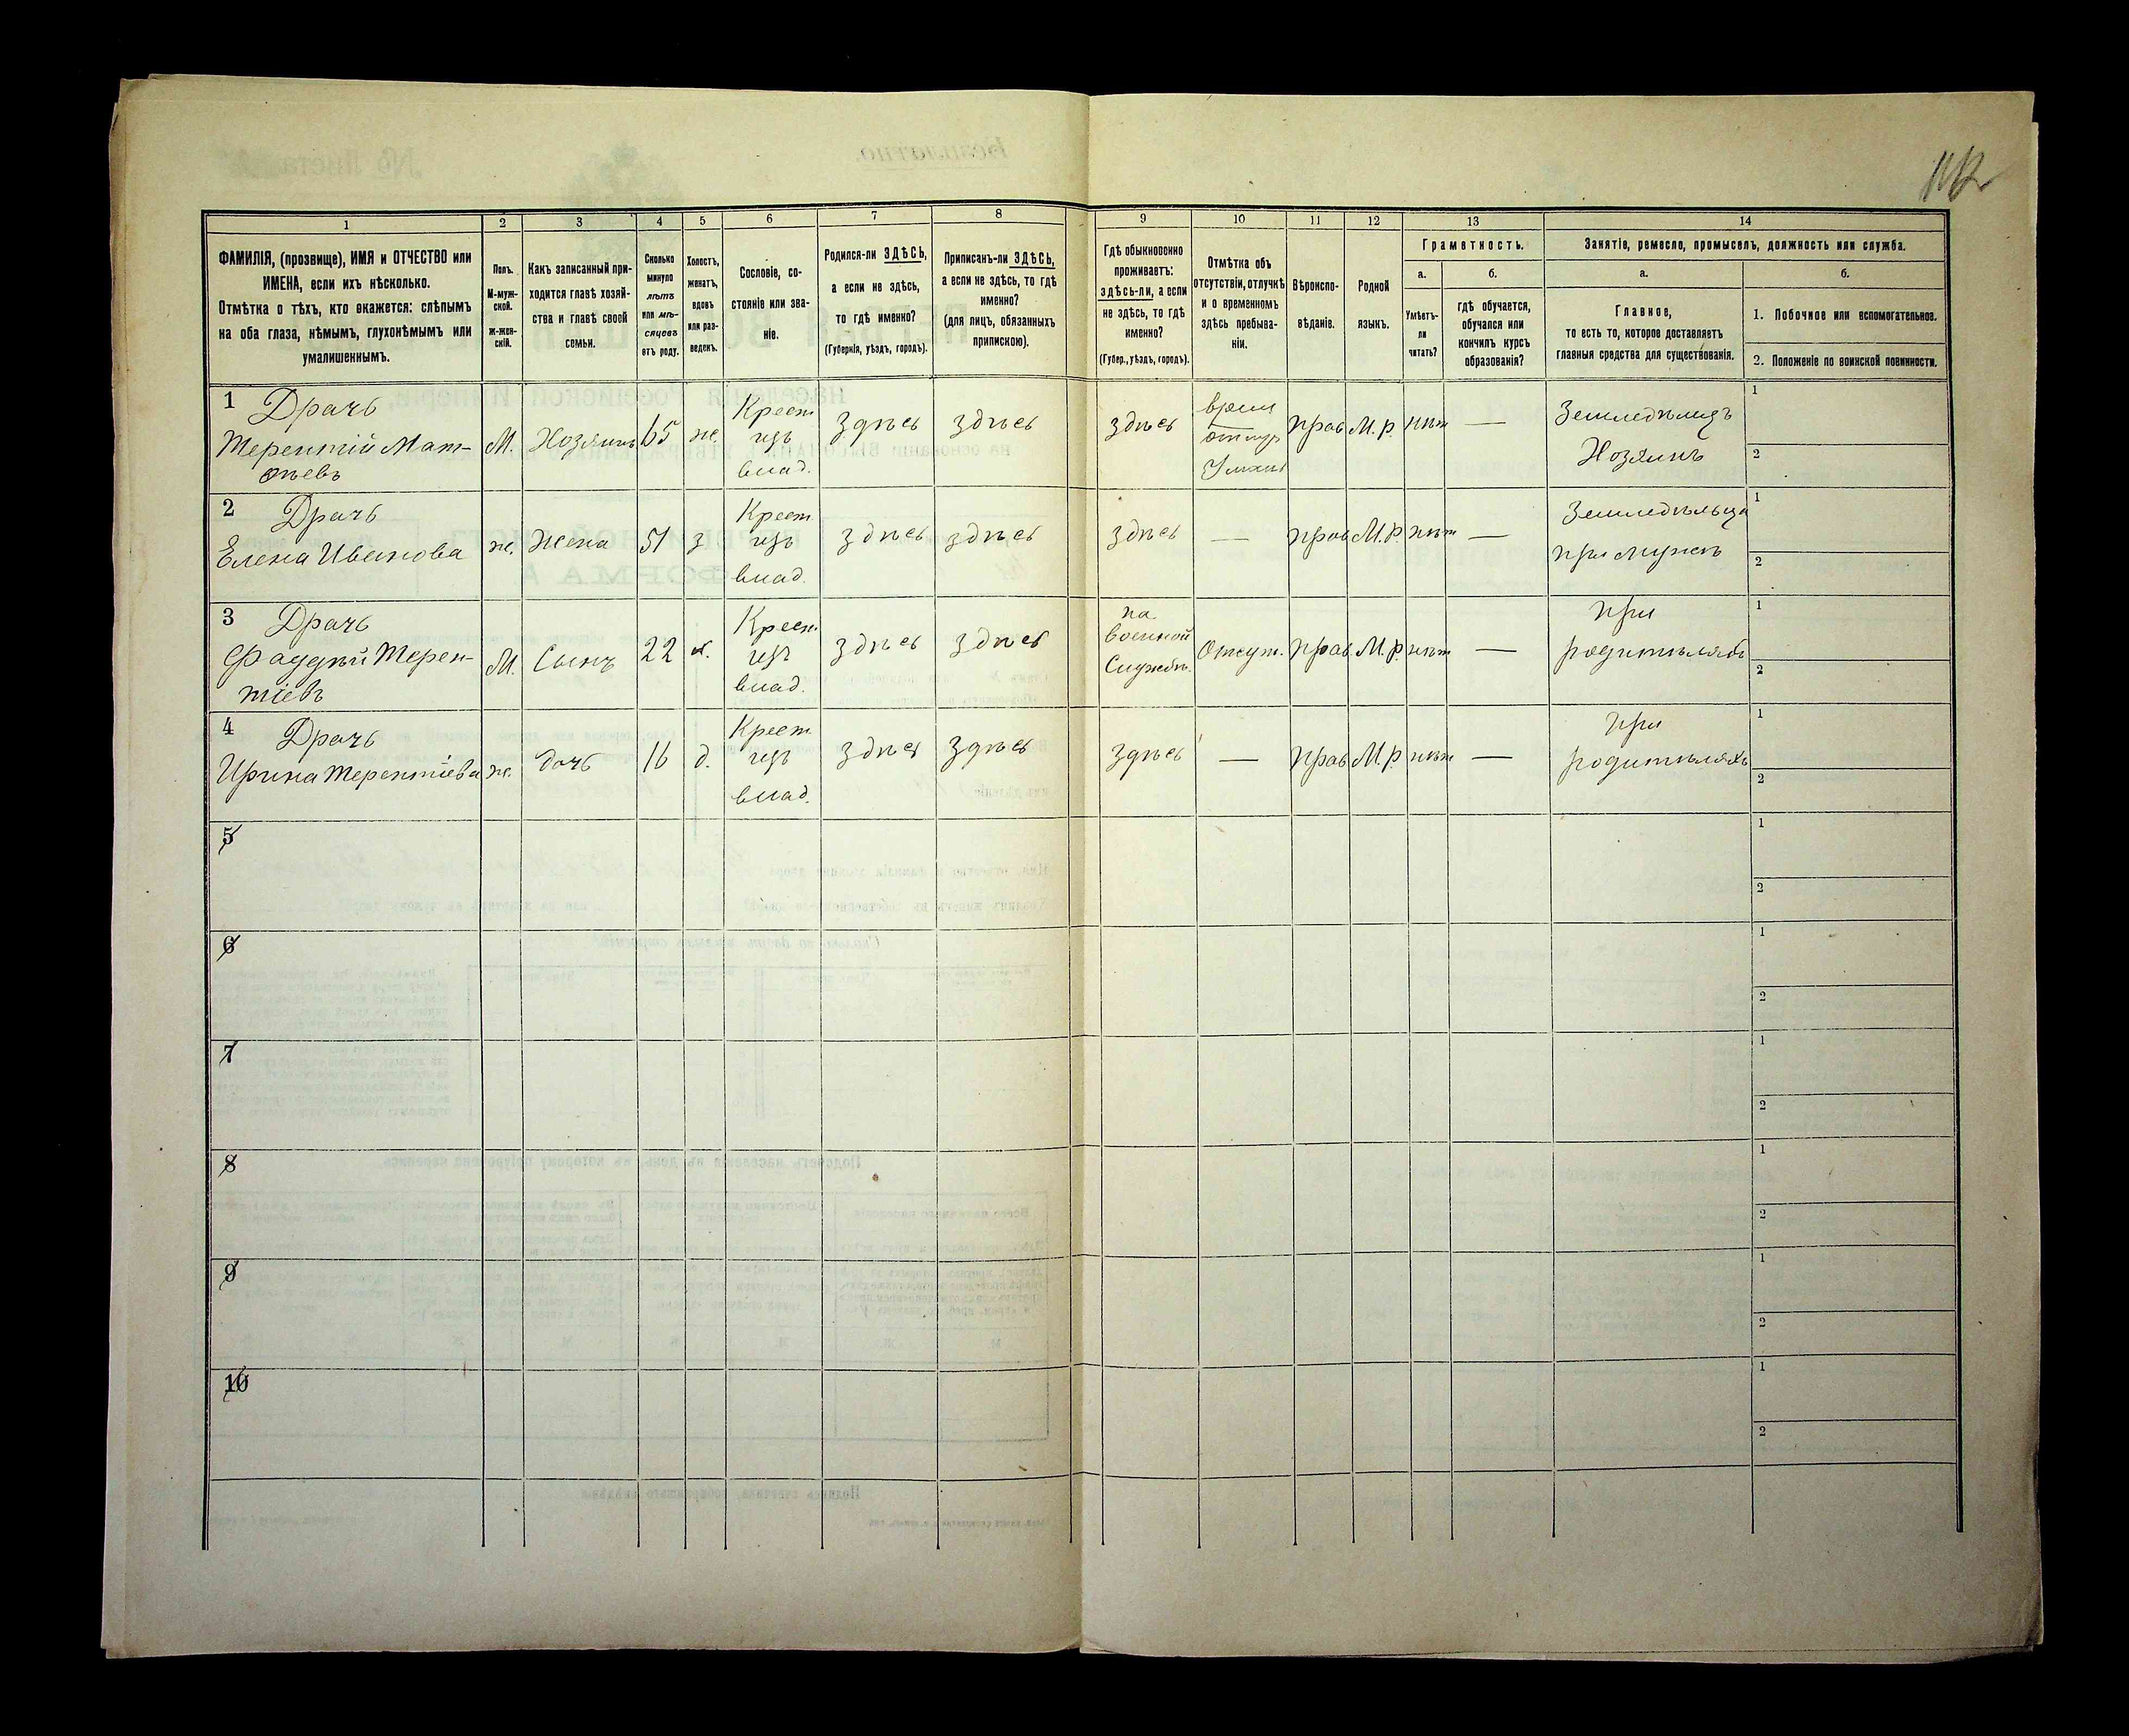 112
1
2
3
4
5
6
7
8
9
10
11
12
13
14
ФАМИЛІЯ, (прозвище), ИМЯ и ОТЧЕСТВО или
ИМЕНА, если ихъ нѣсколько.
Отмѣтка о тѣхъ, кто окажется: слѣпымъ
на оба глаза, нѣмымъ, глухонѣмымъ или
умалишеннымъ.
Полъ.
М-муж-
ской.
ж-жен-
скій.
Какъ записанный при-
ходится главѣ хозяй-
ства и главѣ своей
семьи.
Сколько
минуло
лѣтъ
или мѣ-
сяцевъ
отъ роду.
Холостъ,
женатъ,
вдовъ
или раз-
веденъ.
Сословіе, со-
стояніе или зва-
ніе.
Родился-ли ЗДѢСЬ,
а если не здѣсь,
то гдѣ именно?
(Губернія, уѣздъ, городъ).
Приписанъ-ли ЗДѢСЬ,
а если не здѣсь, то гдѣ
именно?
(для лицъ, обязанныхъ
припискою).
Гдѣ обыкновенно
проживаетъ:
здѣсь-ли, а если
не здѣсь, то гдѣ
именно?
(Губер., уѣздъ, городъ).
Отмѣтка объ
отсутствіи, отлучкѣ
и о временномъ
здѣсь пребыва-
ніи.
Вѣроиспо-
вѣданіе.
Родной
языкъ.
Грамотность.
а.
Умѣетъ-
ли
читать?
б.
гдѣ обучается,
обучался или
кончилъ курсъ
образованія?
Занятіе, ремесло, промыселъ, должность или служба.
а.
Главное,
то есть то, которое доставляетъ
главныя средства для существованія.
б.
1. Побочное или вспомогательное.
2. Положеніе по воинской повинности.
1 Драчъ
Терентій Мат-
ѳѣевъ
М.
Хозяинъ
65
ж.
Крест
изъ
влад.
Здѣсь
здѣсь
здѣсь
прав
М.р.
нѣт
—
Земледѣлецъ
Хозяинъ
1
2
2 Драчъ
Елена Иванова
ж.
жена
51
з
Крест
изъ
влад.
здѣсь
здѣсь
здѣсь
—
прав
М.р.
нѣт
—
Земледѣльца
при мужѣ
1
2
3 Драчъ
Фаддѣй Терен-
тіевъ
М.
Сынъ
22
Крест
изъ
влад.
здѣсь
здѣсь
на
военной
Службѣ.
Отсут.
прав
М.р.
нѣт
—
при
родителяхъ
1
2
4 Драчъ
Ирина Терентіева
ж.
дочь
16
д.
Крест
изъ
влад.
здѣсь
здѣсь
здѣсь
—
прав
М.р.
нѣт
—
при
родителяхъ
1
2
5
1
2
6
1
2
7
1
2
8
1
2
9
1
2
10
1
2